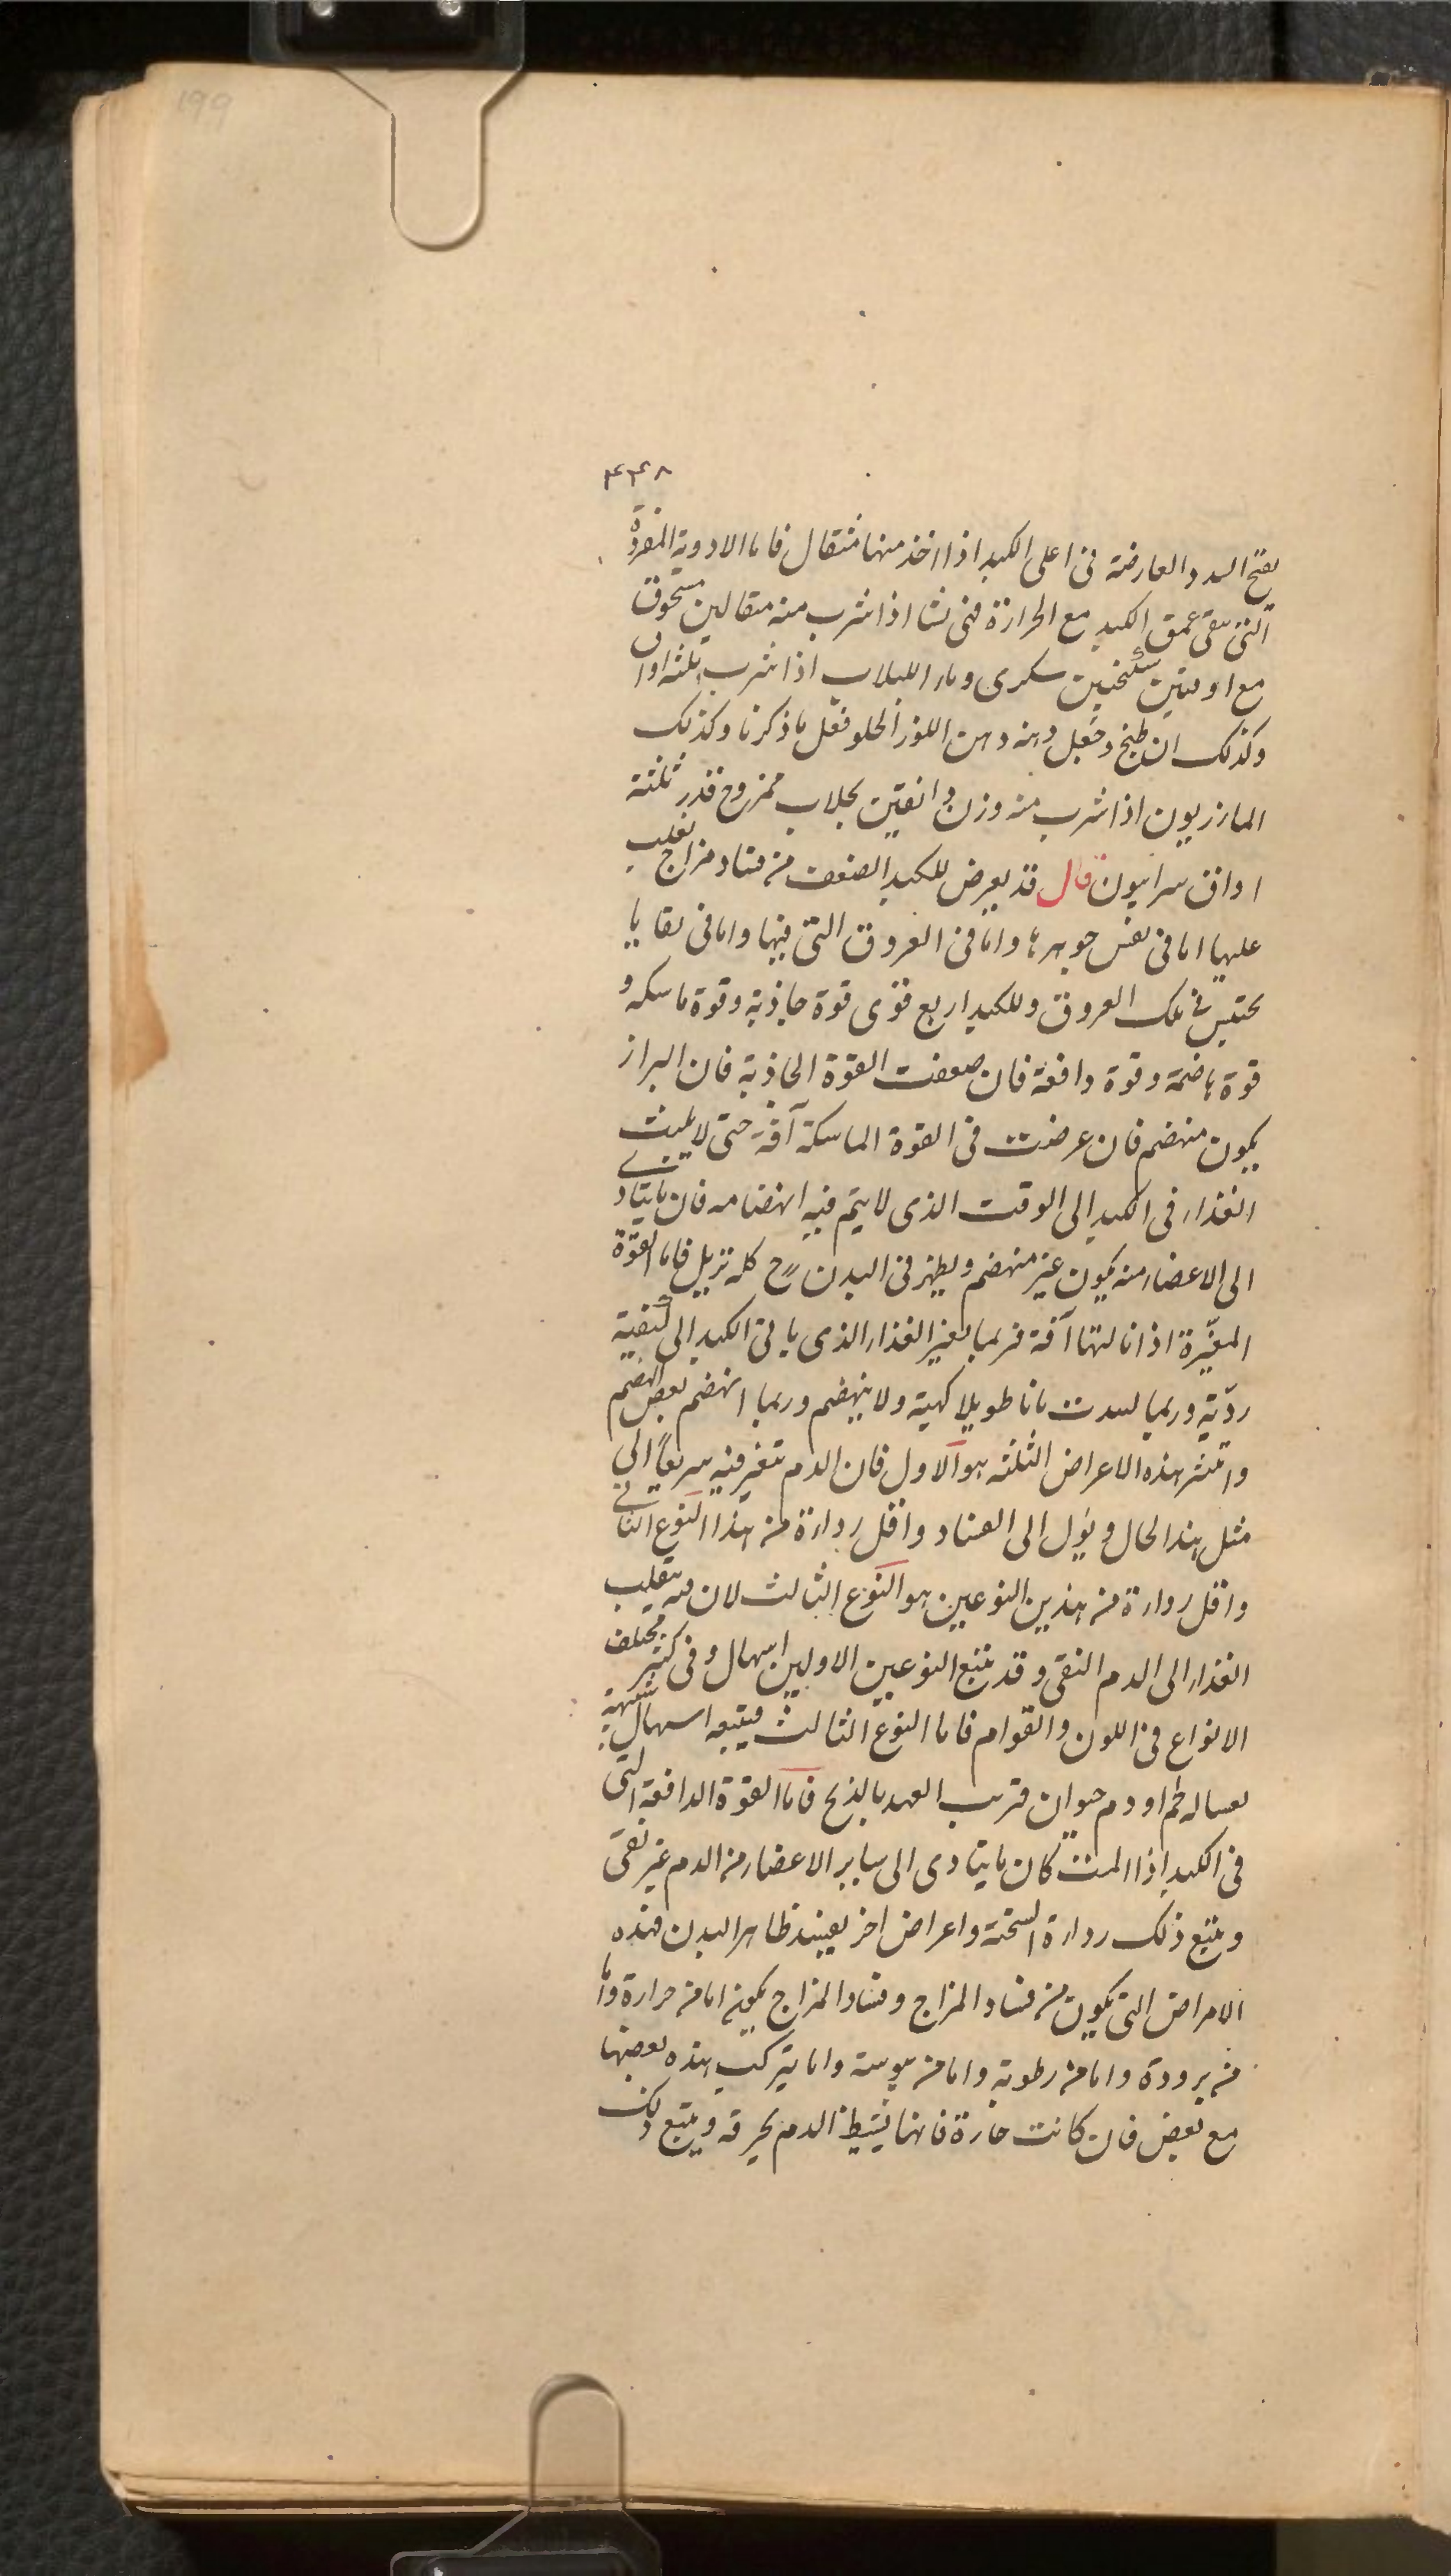 199
۴۴۸
يفتح السدد العارضة فى اعلى الكبد اذا اخذ منها مثقال فاما الادوية المفردة
التى تنقى عمق الكبد مع الحرارة فمنى نشا اذا شرب منه مثقالين مسحوق
مع اوقيتين سكنجبين سكرى وماء اللبلاب اذا شرب ثلثه اواق
وكذلك ان طبخ وجعل دهنه دهن اللوز الحلو فعل ما ذكرنا وكذلك
المازريون اذا شرب منه وزن دانقين بجلاب ممزوج قدر ثلثة
اواق سرابيون قال قد يعرض للكبد الضعف من فساد مزاج يغلب
عليها اما فى نفس جوهرها واما فى العروق التى فيها واما فى بقايا
تحتبس فى تلك العروق وللكبد اربع قوى قوة جاذبة وقوة ماسكه و
قوة هاضمة وقوة دافعة فان ضعفت القوة الجاذبة فان البراز
يكون منهضم فان عرضت فى القوة الماسكة آفة حتى لا يلبث
الغذاء فى الكبد الى الوقت الذى لا يتم فيه انهضامه فان ما يتادى
الى الاعضاء منه يكون غير منهضم ويظهر فى البدن ح كله تزيل فاما القوة
المغيرة اذا نالتها آفة فربما تغير الغذاء الذى ياتى الكبد الى كيفية
ردية وربما لبدت زمانا طويلا كهية ولا ينهضم وربما انهضم بعض الهضم
واشر هذه الاعراض الثلثه هو الاول فان الدم تتغير فيه سريعا الى
مثل هذا الحال ويؤل الى الفساد واقل رداءة من هذا النوع الثانى
واقل رداءة من هذين النوعين هو النوع الثالث لان فيه ينقلب
الغذاء الى الدم النقى وقد تتبع النوعين الاولين اسهال وفى كثير مختلف
الانواع فى اللون والقوام فاما النوع الثالث فيتبعه اسهال شبيه
بغسالة لحم او دم حيوان قريب العهد بالذبح فاما القوة الدافعة التى
فى الكبد اذا المت كان ما يتادى الى ساير الاعضاء من الدم غير نقى
ويتبع ذلك رداءة السحنة واعراض اخر يفسد ظاهر البدن فهذه
الامراض التى يكون من فساد المزاج وفساد المزاج يكون اما من حرارة واما
من برودة واما من رطوبة واما من يبوسة واما بتركيب هذه بعضها
مع بعض فان كانت حارة فانها تشيط الدم بحرقه ويتبع ذلك